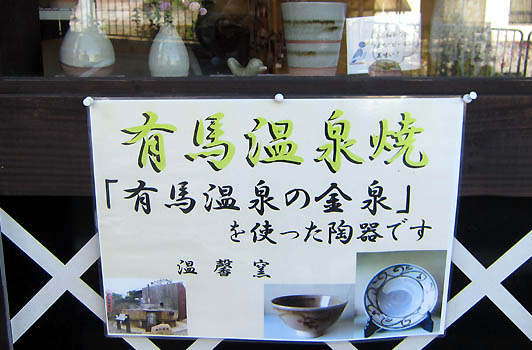 有馬温泉焼
「有馬温泉の金泉」
を使った陶器です
温馨窯